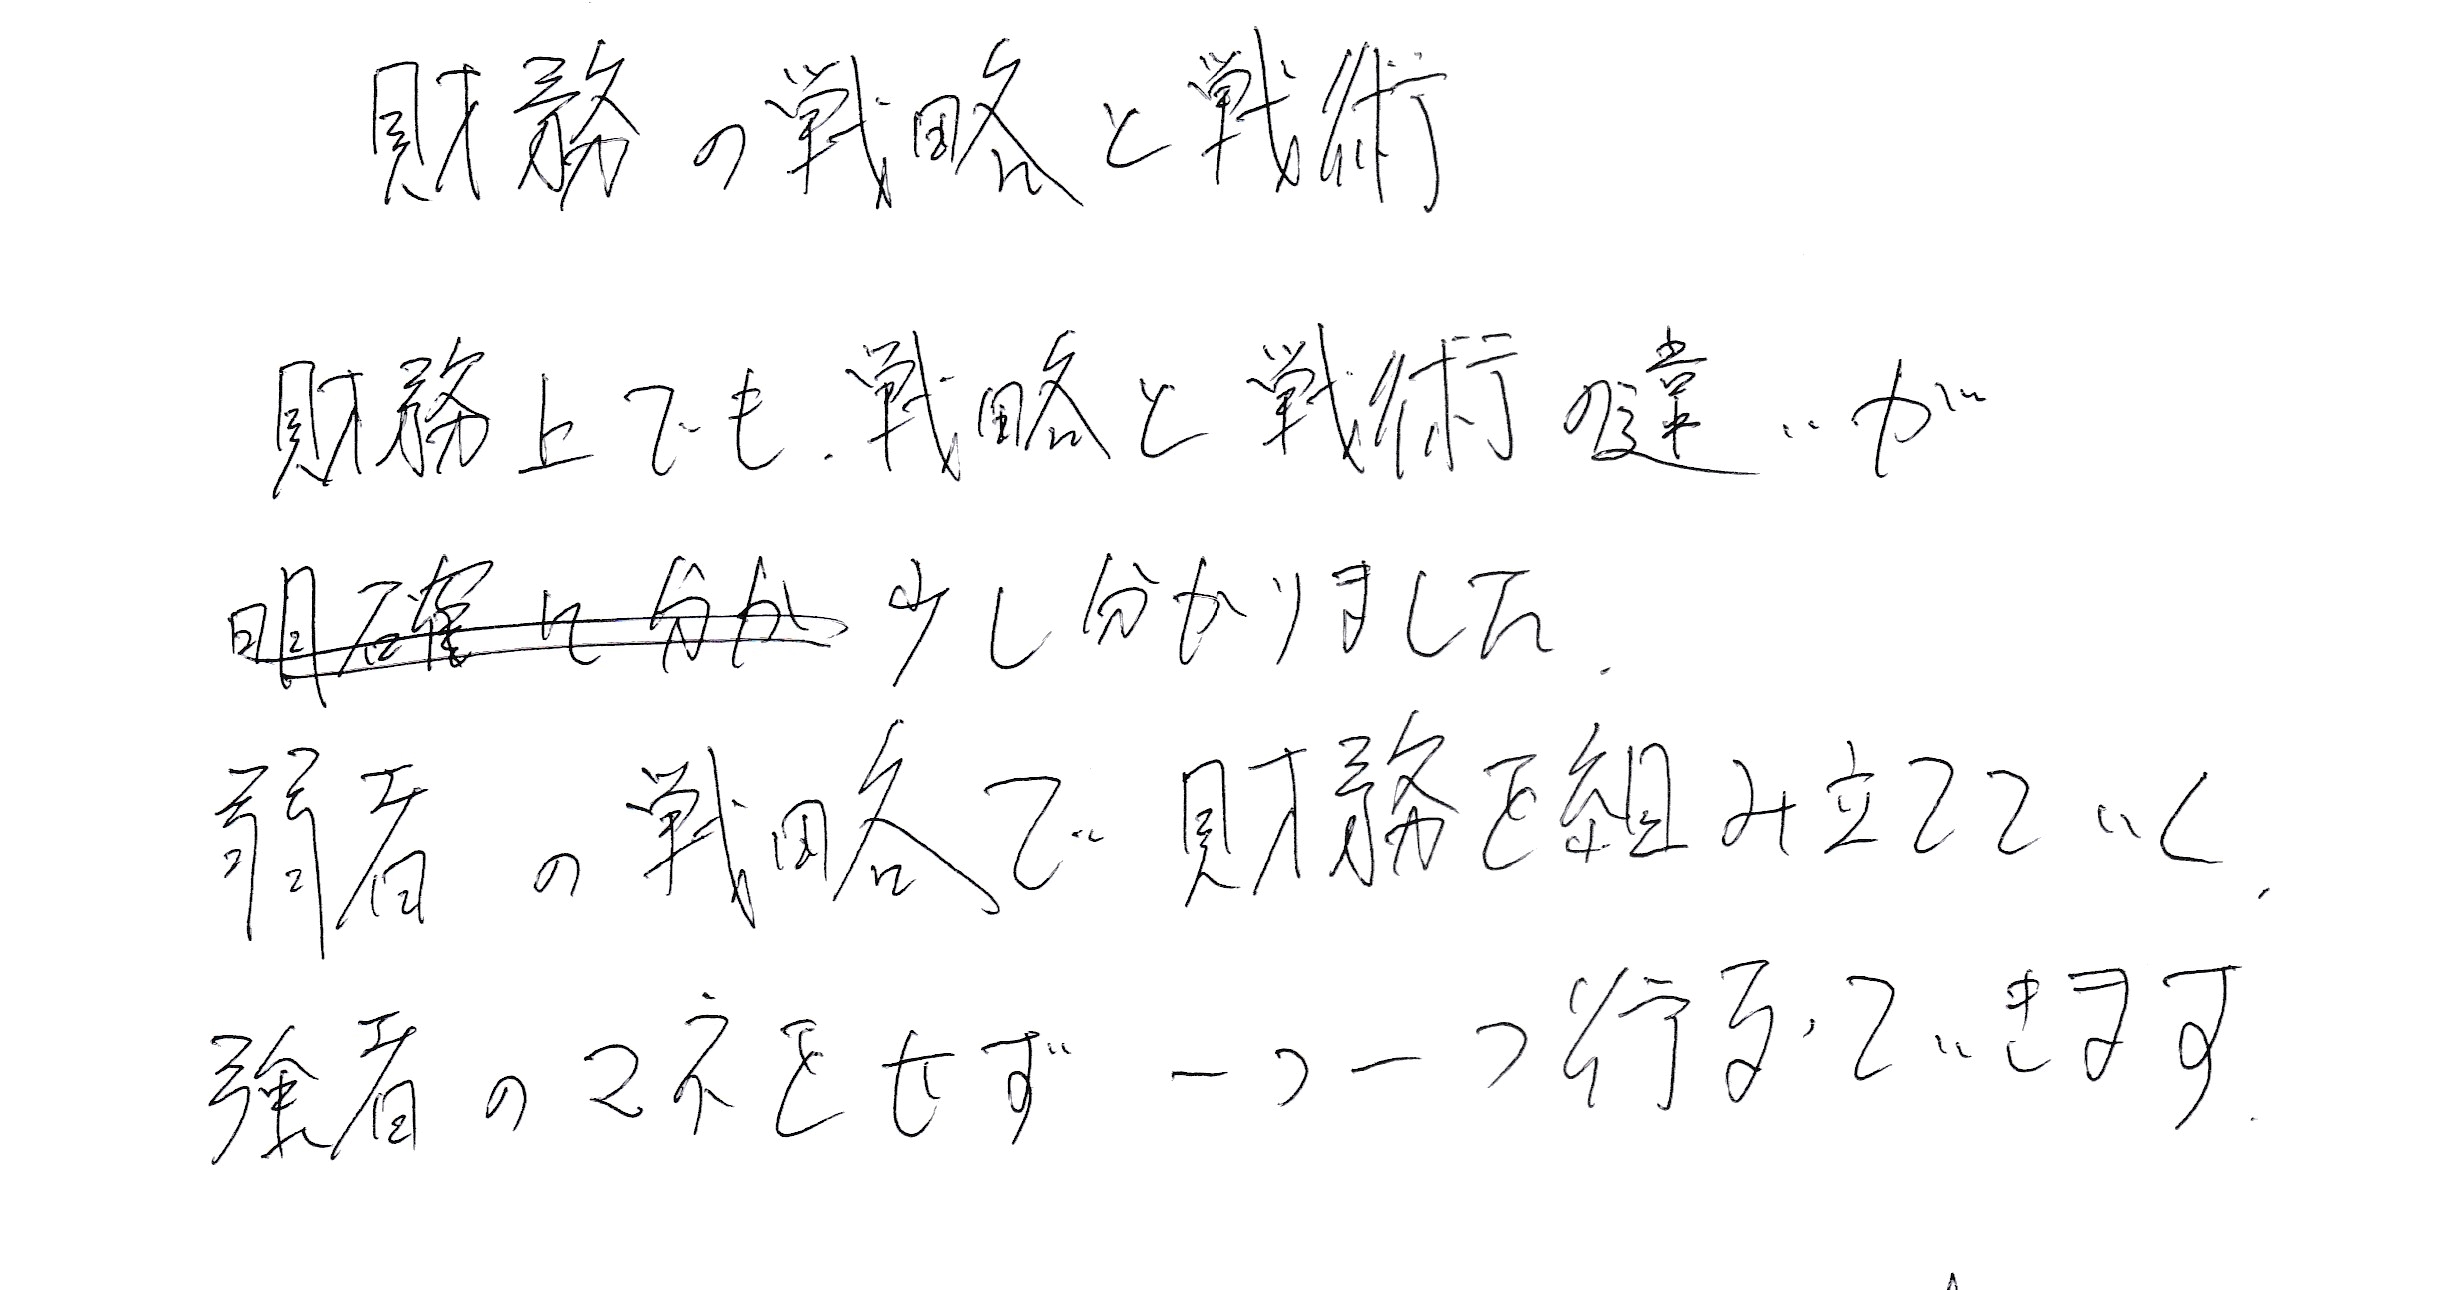 財務の戦略と戦術
財務上でも、戦略と戦術の違いが
明確に分か 少し分かりました。
弱者の戦略で財務を組み立てていく。
強者のマネをせず 一つ一つ行っていきます。